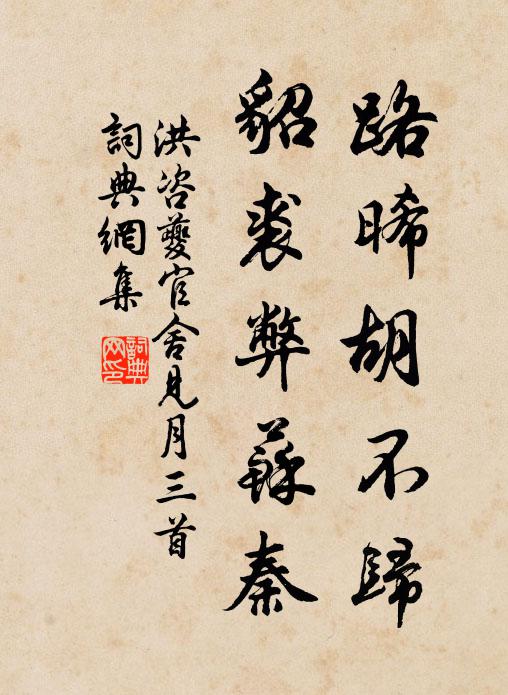 路晞胡不歸
貂裘弊蘇秦
洪咨夔官舍見月三首
詞典網集
詞典網印